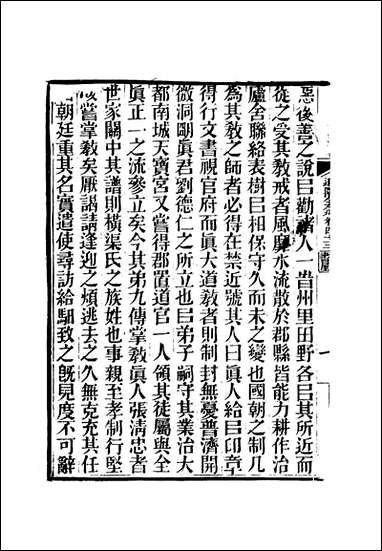 惡後善之說㠯勸諸人一旹州里田野各㠯其所近而
從之受其敎戒者風靡水流散於郡縣皆能力耕作治
廬舍聯絡表樹㠯相保守久而未之變也國朝之制凡
爲其敎之師者必得在禁近號其人曰眞人給㠯印章
得行文書視官府而眞大道敎者則制封無憂普濟開
微洞朙眞君劉德仁之所立也㠯弟子祠守其業治大
都南城天寶宮又嘗得郡置道官一人領其徒屬與全
眞正一之流參立矣今其弟九傳掌敎眞人張淸忠者
世家關中其譜則橫渠氏之族姓也事親至孝制行堅
嘗掌敎矣厭謁請逢迎之煩逃去之久無克充其任
朝廷重其名實遣使尋訪給馹致之旣見度不可辭